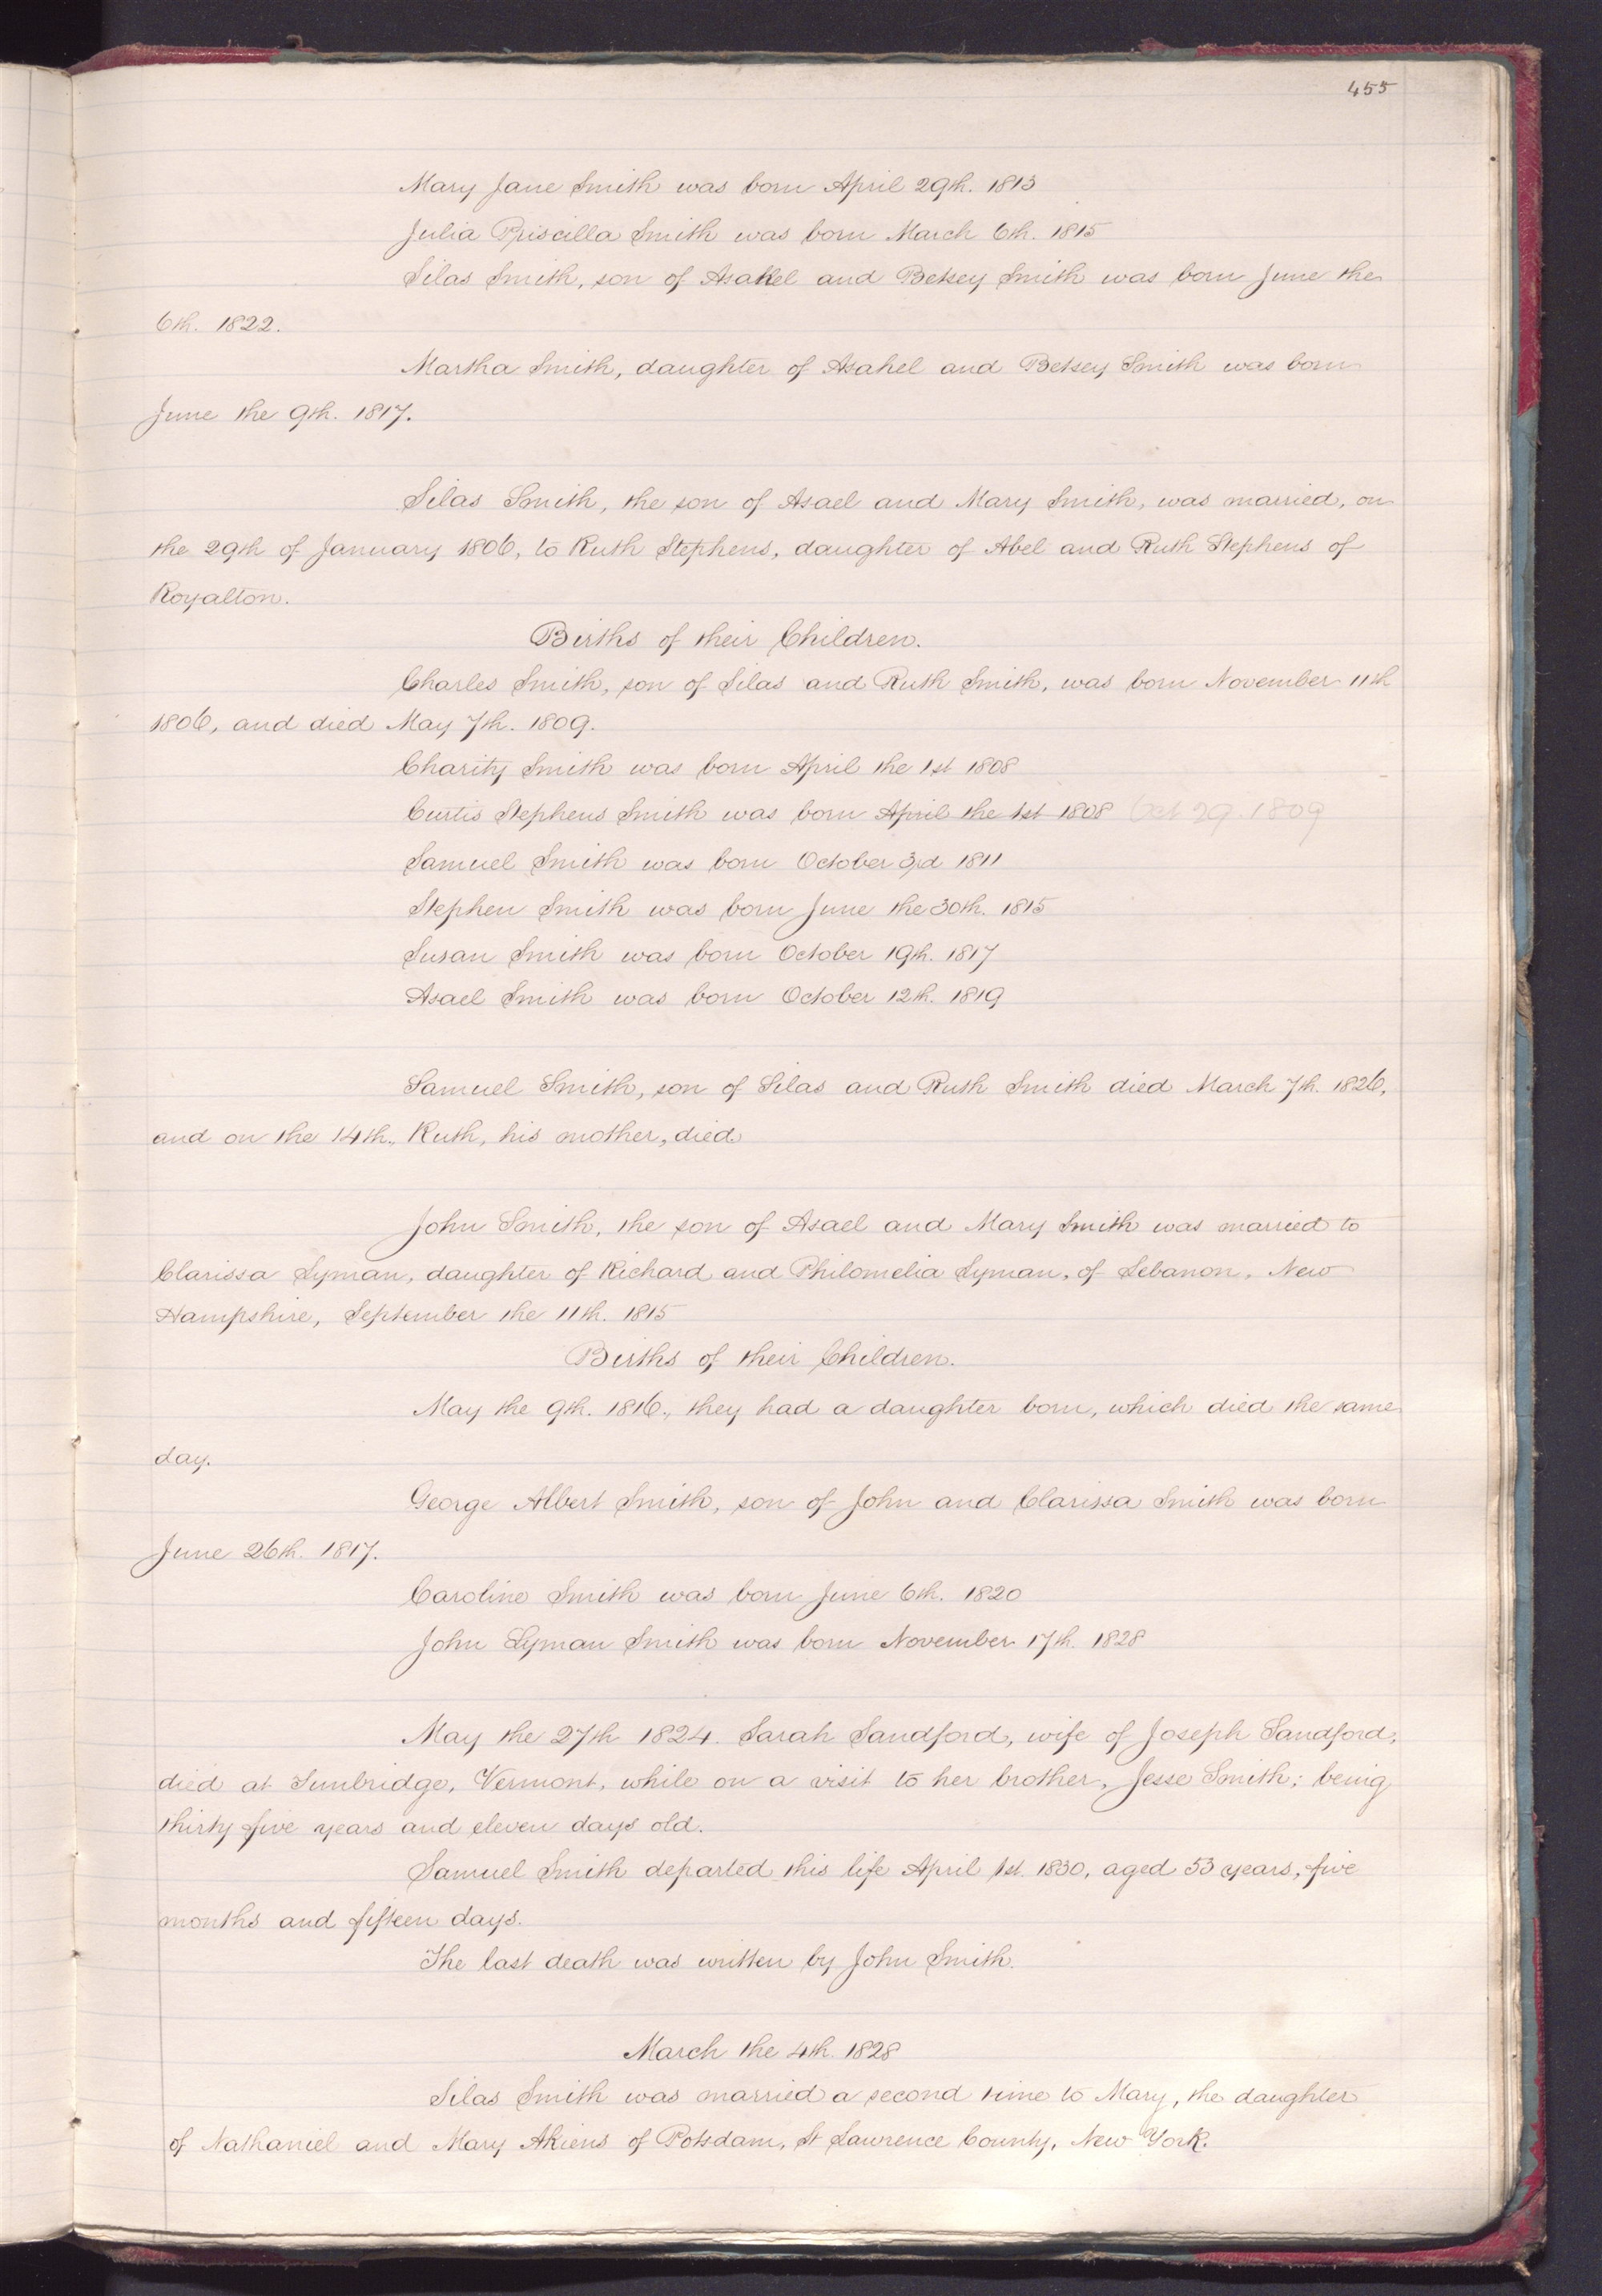 455
Mary Jane Smith was born April 29th. 1813
Julia Priscilla Smith was born March 6th. 1815
Silas Smith, son of Asahel and Betsey Smith was born June the
6th. 1822.
Martha Smith, daughter of Asahel and Betsey Smith was born
June the 9th. 1817.
Silas Smith, the son of Asael and Mary Smith, was married, on
the 29th of January 1806, to Ruth Stephens, daughter of Abel and Ruth Stephens of
Royalton.
Births of their Children.
Charles Smith, son of Silas and Ruth Smith, was born November 11th
1806, and died May 7th. 1809.
Charity Smith was born April the 1st 1808
Curtis Stephens Smith was born April the 1st 1808 Oct 29. 1809
Samuel Smith was born October 3rd 1811
Stephen Smith was born June the 30th. 1815
Susan Smith was born October 19th. 1817
Asael Smith was born October 12th. 1819
Samuel Smith, son of Silas and Ruth Smith died March 7th. 1826,
and on the 14th., Ruth, his mother, died
John Smith, the son of Asael and Mary Smith was married to
Clarissa Lyman, daughter of Richard and Philomelia Lyman, of Lebanon, New
Hampshire, September the 11th. 1815
Births of their Children.
May the 9th. 1816., they had a daughter born, which died the same
day.
George Albert Smith, son of John and Clarissa Smith was born
June 26th. 1817.
Caroline Smith was born June 6th. 1820
John Lyman Smith was born November 17th. 1828
May the 27th 1824. Sarah Sandford, wife of Joseph Sandford,
died at Tunbridge, Vermont, while on a visit to her brother, Jesse Smith; being
thirty five years and eleven days old.
Samuel Smith departed this life April 1st. 1830, aged 53 years, five
months and fifteen days.
The last death was written by John Smith.
March the 4th. 1828
Silas Smith was married a second time to Mary, the daughter
of Nathaniel and Mary Akiens of Potsdam, St Lawrence County, New York.